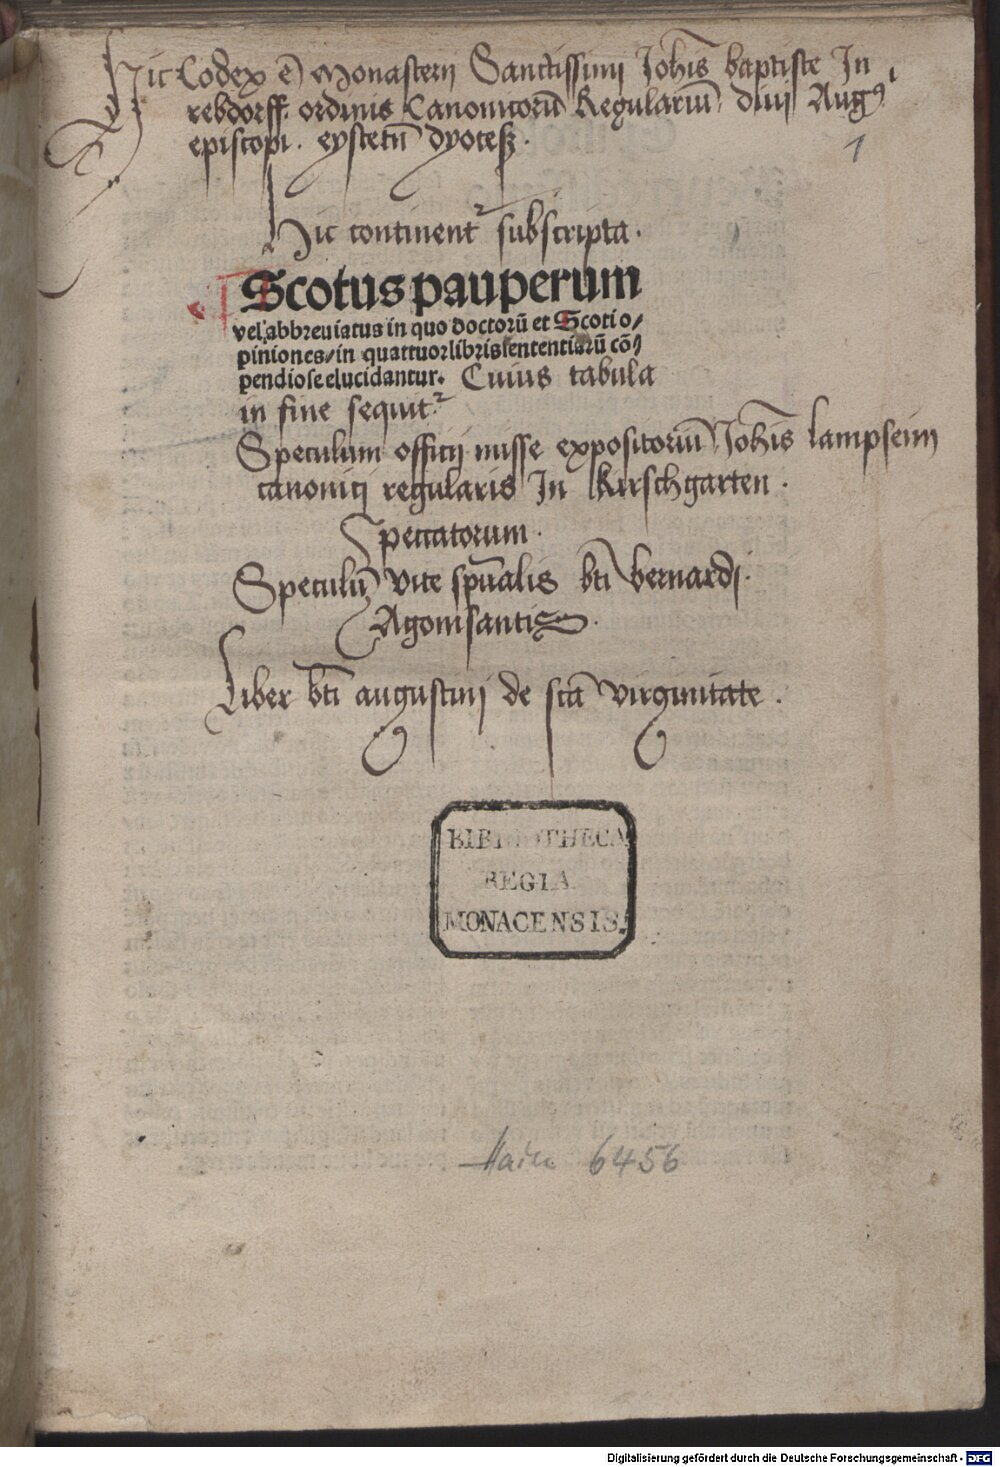 Hic Codex ē Monasterij Sanctissimi Johīs baptiste In
rebdorff. ordinis Canonicorū Regulariū diui Augꝰ
episcopi. eystetn̄ dyoceß.
1
Hic continent᷑ subscripta.
Scotus pauperum
vel abbreuiatus in quo doctorū et Scoti o/
piniones/in quattuor libris sententiarū cō/
pendiose elucidantur. Cuius tabula
in fine sequit᷑.
Speculum officij misse expositoriū Johīs lampseim
canonici regularis In Kirschgarten.
peccatorum.
Speculū vite spūalis bti bernardj.
Agonisantis.
Liber bti augustini de scta virginitate.
BIBLIOTHECA
REGIA
MONACENSIS.
Hain 6456
Digitalisierung gefördert durch die Deutsche Forschungsgemeinschaft - DFG